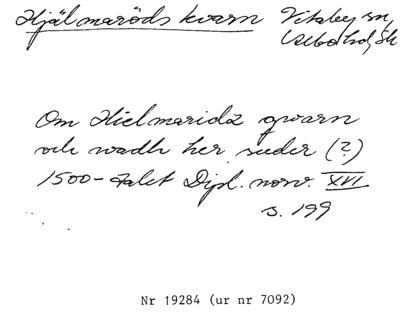 Hjälmaröds kvarn Vitaby sn,
Albo hd, Sk
Om Hielmaridz qwarn
och wadh her seeder (?)
1500-talet Dipl. norv. XVI
s. 199
Nr 19284 (ur nr 7092)